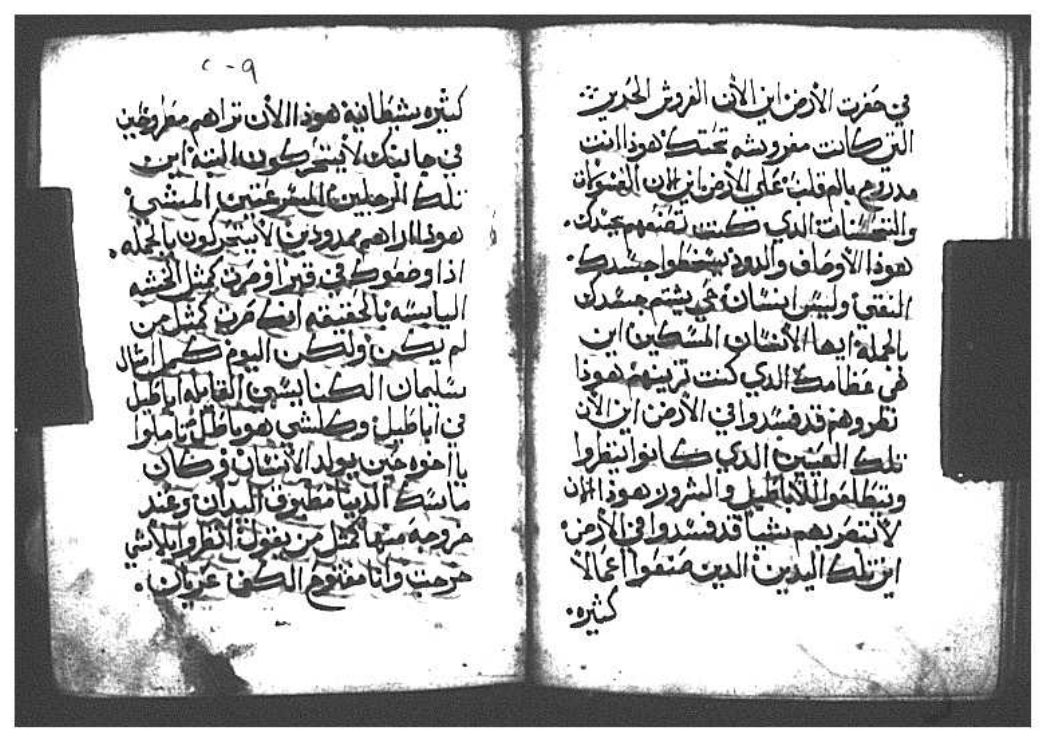 في حفرت الارض اين الان الفروش الحرير
التي كانت مفروشه تحتك هوذا انت
مدروج بالم قلب على الارض اين الان الغسولات
والتحسنات الذي كنت تصنعهم بجسدك.
هوذا الاوصاف والدود يسخطوا جسدك.
النقي وليس انسان عن يشتم جسدك
بالجملة ايها الانسان المسكين اين
هي عظامك الذي كنت تزينهم هوذا
نظروهم قد فسدوا في الارض اين الان
تلك العينين الذي كانوا ينظروا
ويتطلعوا للاباطيل والشرور هوذا الان
لا تنتصر بهم بشيا قد فسدوا في الارض
اين تلك اليدين الذين صنعوا اعمالا
كثيره.
٢٠٩
كثيره شيطانية هوذا الان تراهم مطروحين
في جانبك لا يتحركون البتة اين
تلك الرجلين المسرعتين المشي
هوذا اراهم ممدودين لا يتحركون بالجمله.
اذا وضعوك في قبر او صرت كمثل الخشبه
اليابسه بالحقيقه انك صرت كمثل من
لم يكن ولكن اليوم كما قال
سليمان الكنايسي القايله اباطيل
في اباطيل وكلشي هو باطل تاملوا
يا اخوه حين يولد الانسان وكان
ماسك الدنيا مطبوق اليدان وعند
خروجه منها كمثل من يقول انظروا بلاشي
خرجت وانا مفتوح الكف عريان.